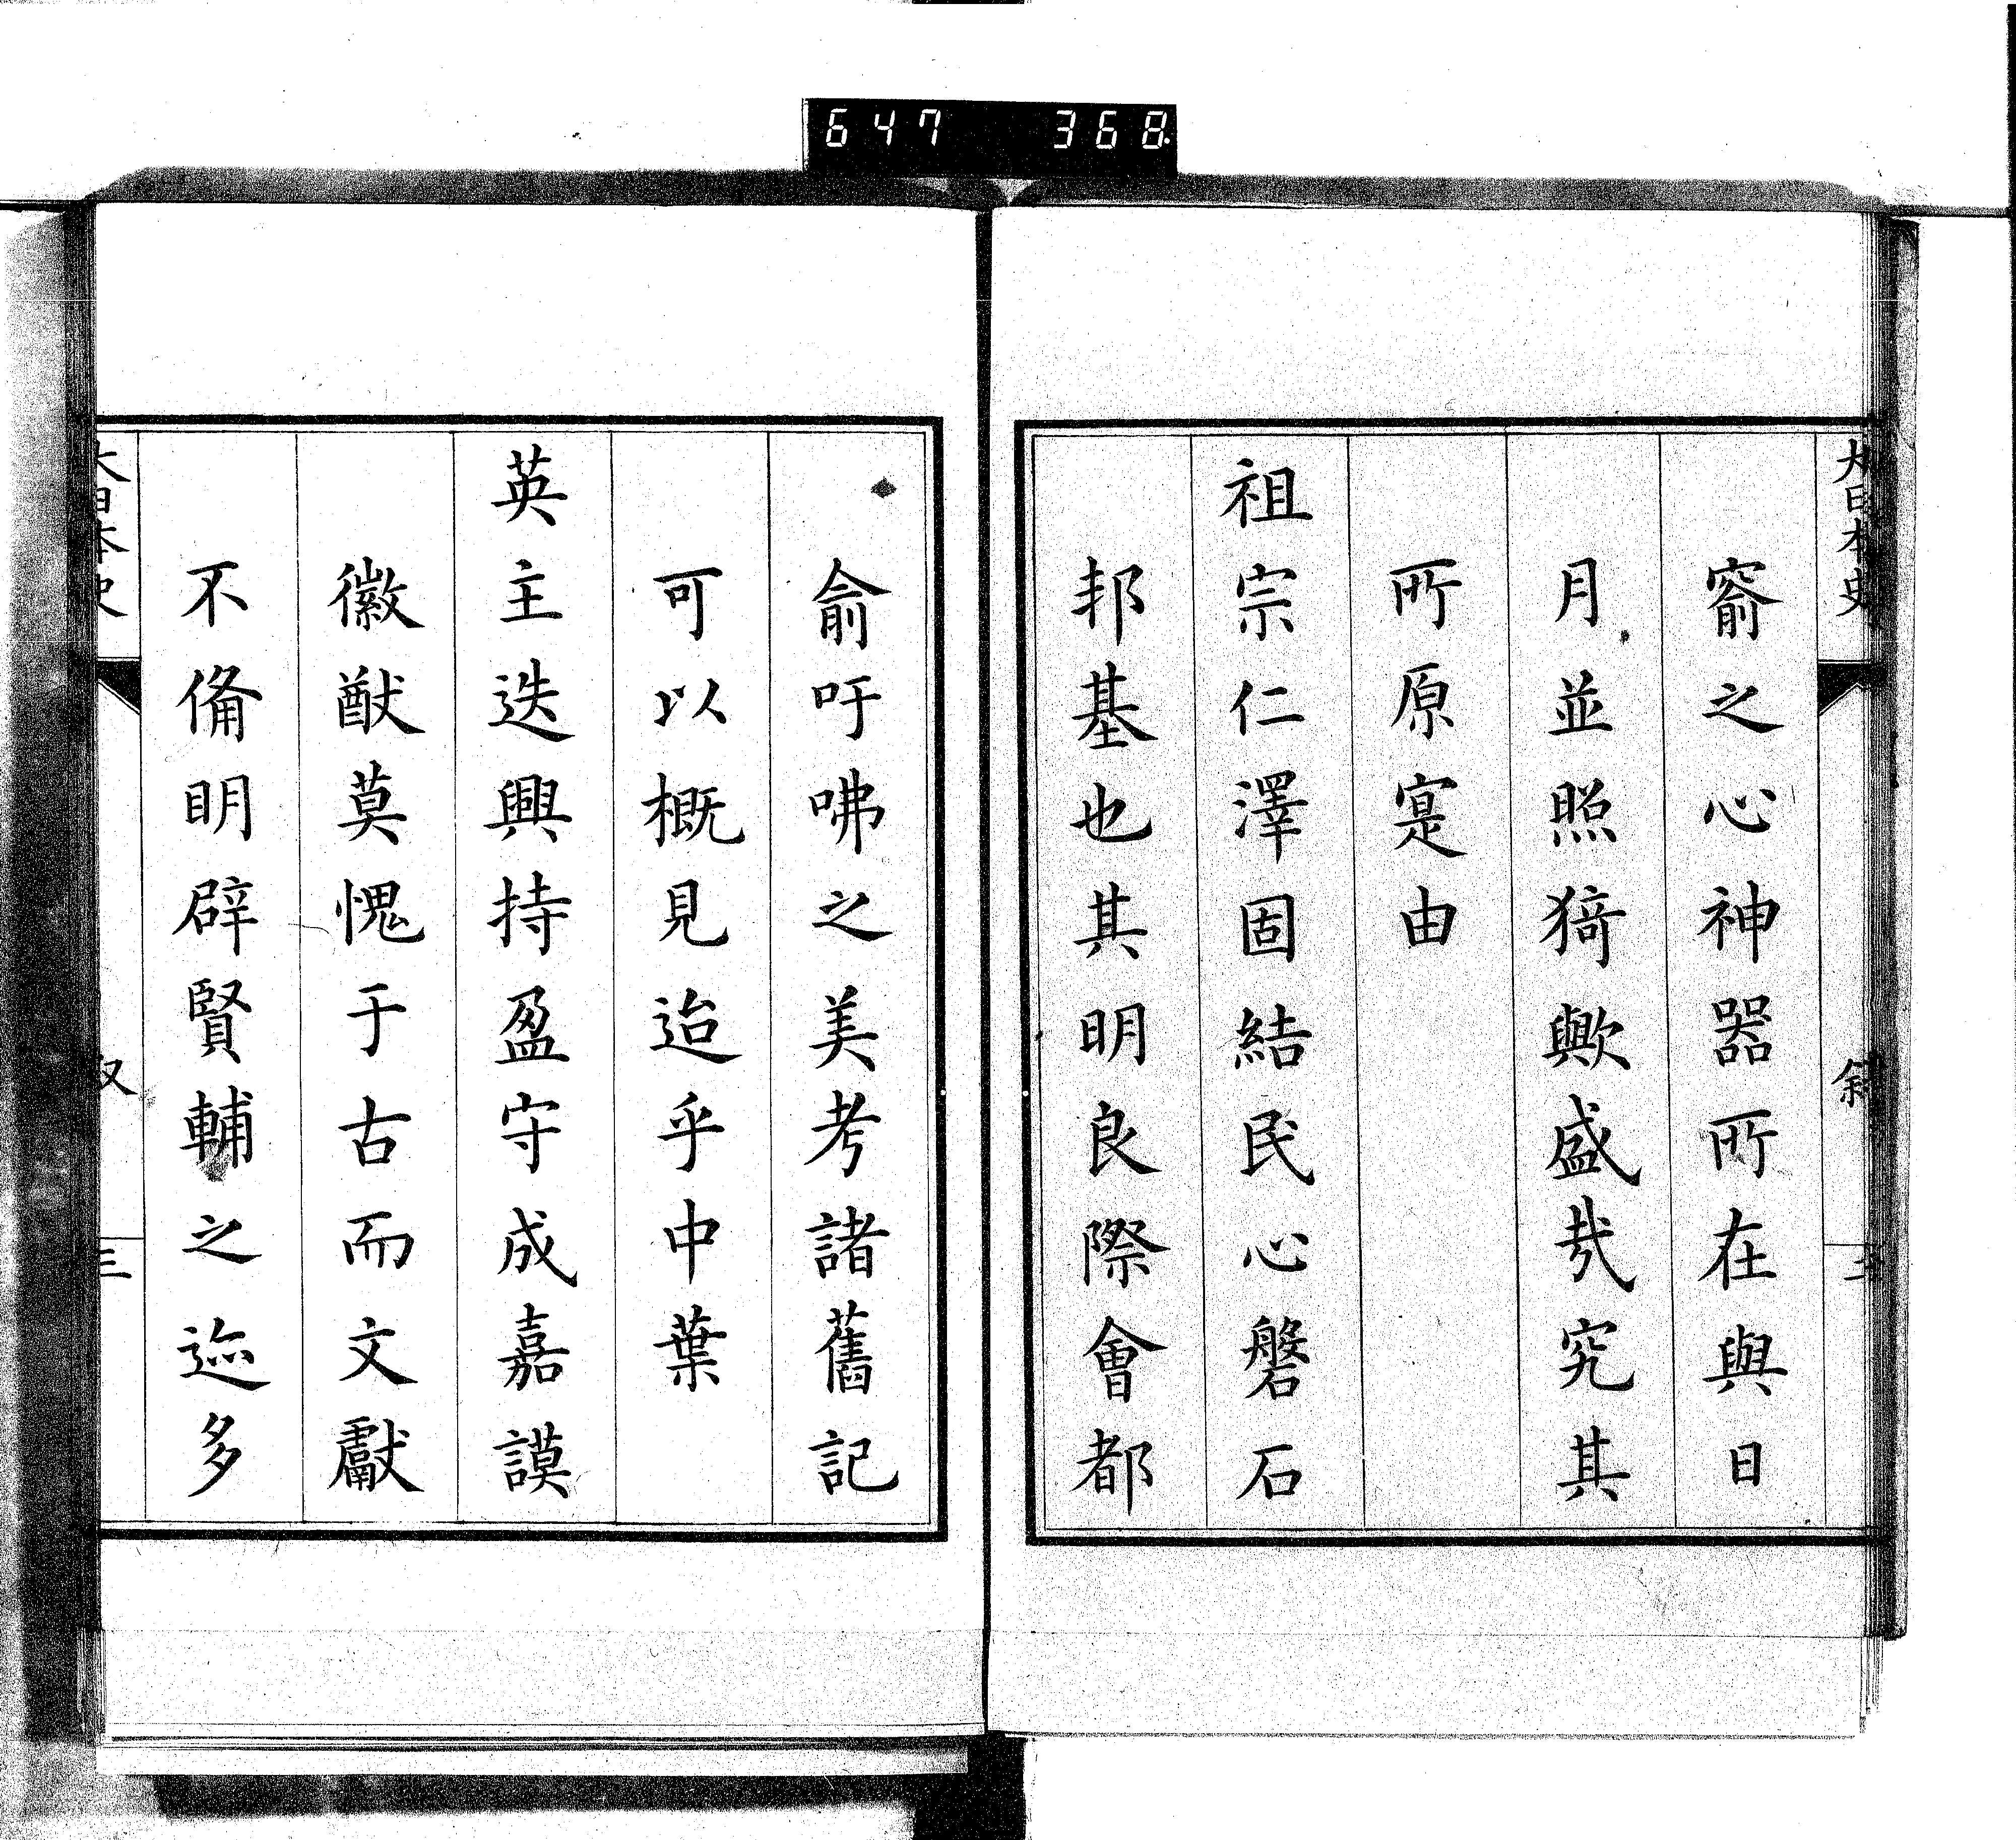 647 368.
大日本史 敍 三
窬之心神器所在與日
月並照猗歟盛哉究其
所原寔由
祖宗仁澤固結民心磐石
邦基也其明良際會都
俞吁咈之美考諸舊記
可以概見迨乎中葉
英主迭興持盈守成嘉謨
徽猷莫愧于古而文獻
不備明辟賢輔之迹多
大日本史 敍 三